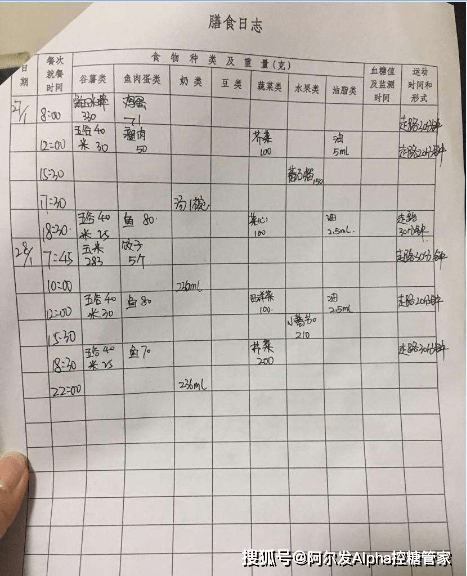 膳食日志
日期 餐次就餐时间 食物种类及重量(克) 血糖值及监测时间 运动时间和形式
谷薯类 鱼肉蛋类 奶类 豆类 蔬菜类 水果类 油脂类
27/1 8:00 330 鸡蛋 71 走路20分钟
12:00 五谷40 米30 瘦肉 50 芥菜 100 油 5ml 走路20分钟
15:30 150
17:30 汤1碗
18:30 五谷40 米25 鱼 80 菜心 100 油 2.5ml 走路 30分钟
28/1 7:45 玉米 283 饺子 5个 走路30分钟
10:00 236ml
12:00 五谷40 米30 鱼80 西洋菜 100 油 2.5ml 走路20分钟
15:30 小番茄 210
18:30 五谷40 米25 鱼70 芥菜 200 走路30分钟
22:00 236ml
搜狐号@阿尔发Alpha控糖管家